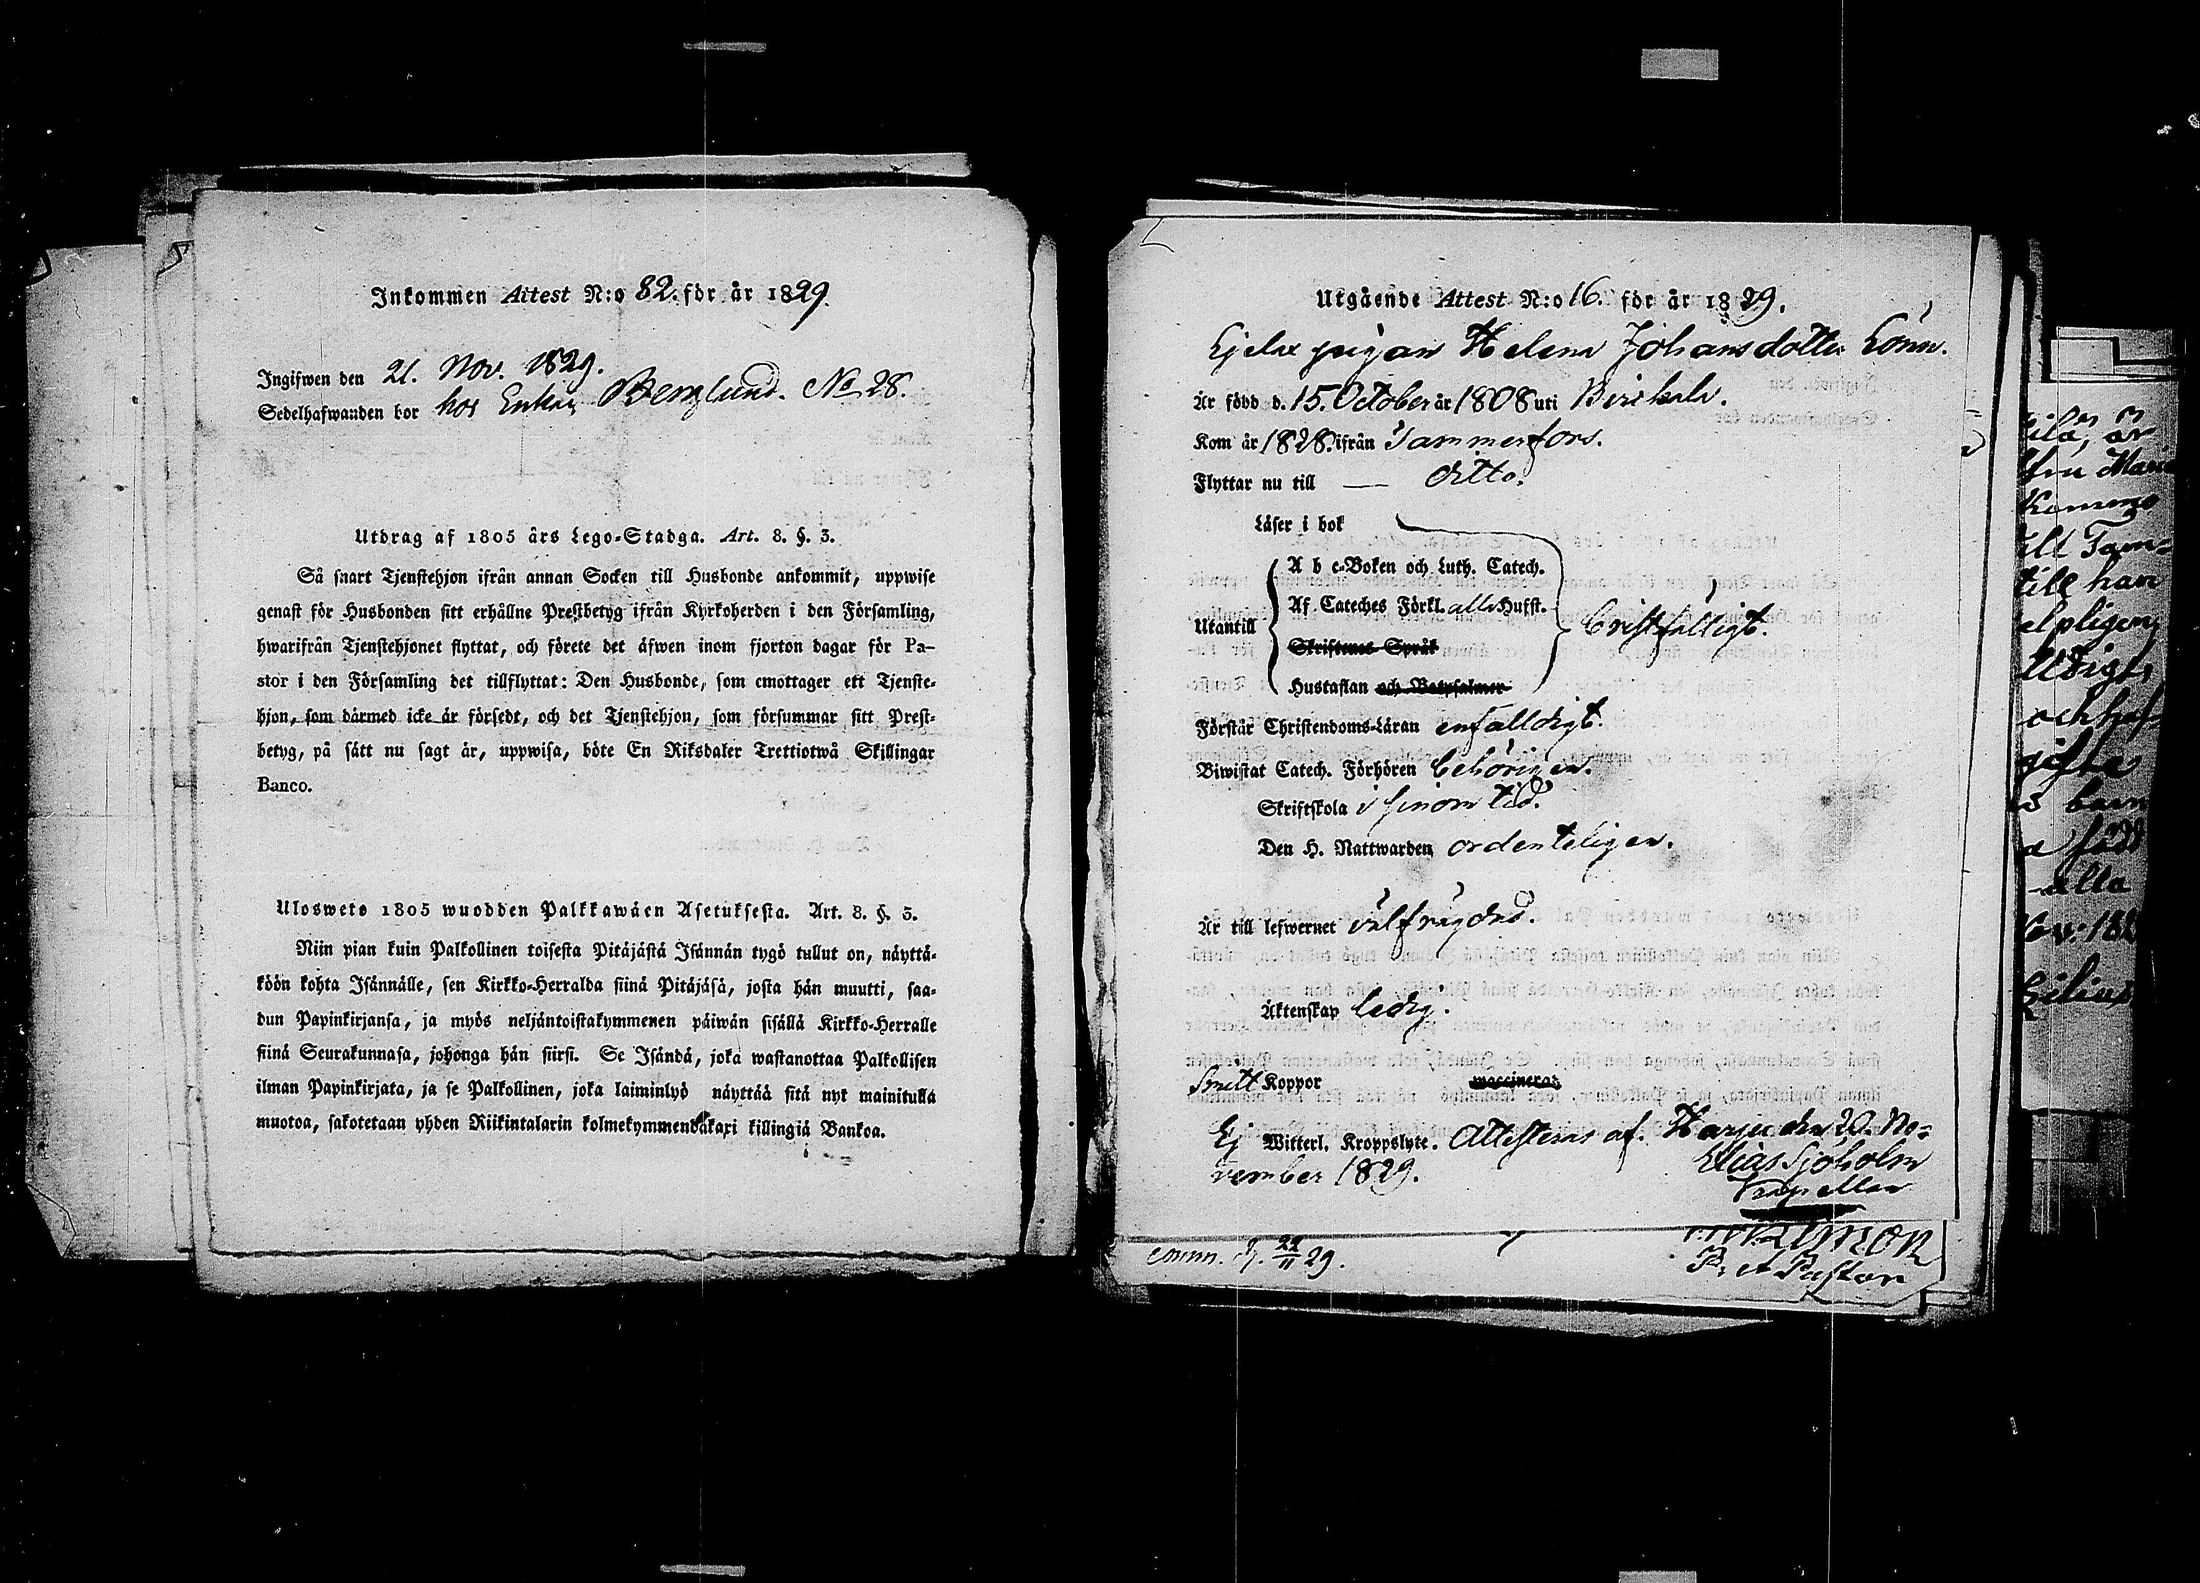 Inkommen Attest N:o 82. för år 1829.
Ingifwen den 21. Nov. 1829.
Sedelhafwanden bor hos Enkan Berglund. No 28.
Utdrag af 1805 års Lego-Stadga. Art. 8. §. 3.
Så snart Tjenstehjon ifrån annan Socken till Husbonde ankommit, uppwise
genast för Husbonden sitt erhållne Prestbetyg ifrån Kyrkoherden i den Församling,
hwarifrån Tjenstehjonet flyttat, och förete det äfwen inom fjorton dagar för Pa-
stor i den Församling det tillflyttat: Den Husbonde, som emottager ett Tjenste-
hjon, som därmed icke är försedt, och det Tjenstehjon, som försummar sitt Prest-
betyg, på sätt nu sagt är, uppwisa, böte En Riksdaler Trettiotwå Skillingar
Banco.
Ulosweto 1805 wuodden Palkkawäen Asetuksesta. Art. 8. §. 3.
Niin pian kuin Palkollinen toisesta Pitäjästä Isännän tygö tullut on, näyttä-
köön kohta Isännälle, sen Kirkko-Herralda siinä Pitäjäsä, josta hän muutti, saa-
dun Papinkirjansa, ja myös neljäntoistakymmenen päiwän sisällä Kirkko-Herralle
siinä Seurakunnasa, johonga hän siirsi. Se Isändä, joka wastanottaa Palkollisen
ilman Papinkirjata, ja se Palkollinen, joka laiminlyö näyttää sitä nyt mainitulla
muotoa, sakotetaan yhden Riikintalarin kolmekymmendäkaxi killingiä Bankoa.
Utgående Attest N:o 16. för år 1829.
pigan Helena Johansdotter
Är född d. 15. October år 1808 uti Birkala.
Kom år 1828. ifrån Tammerfors.
Flyttar nu till — ditto.
Läser i bok
A b c-Boken och Luth. Catech.
Af Cateches Förkl. alla Hufst.
Utantill Bristfälligt.
Skriftenes Språk
Hustaflan och Botpsalmer
Förstår Christendoms-Läran enfaldigt.
Biwistat Catech. Förhören behörigen.
Skriftskola i sinom tid.
Den H. Nattwarden ordenteligen.
Är till lefwernet välfrägdad.
Äktenskap ledig.
Smitt Koppor vaccineras
Ej Witterl. Kroppslyte. Attesteras af. Harju den 20. No-
vember 1829. Elias Sjöholm
Capellan
22/11 29.
Pastor